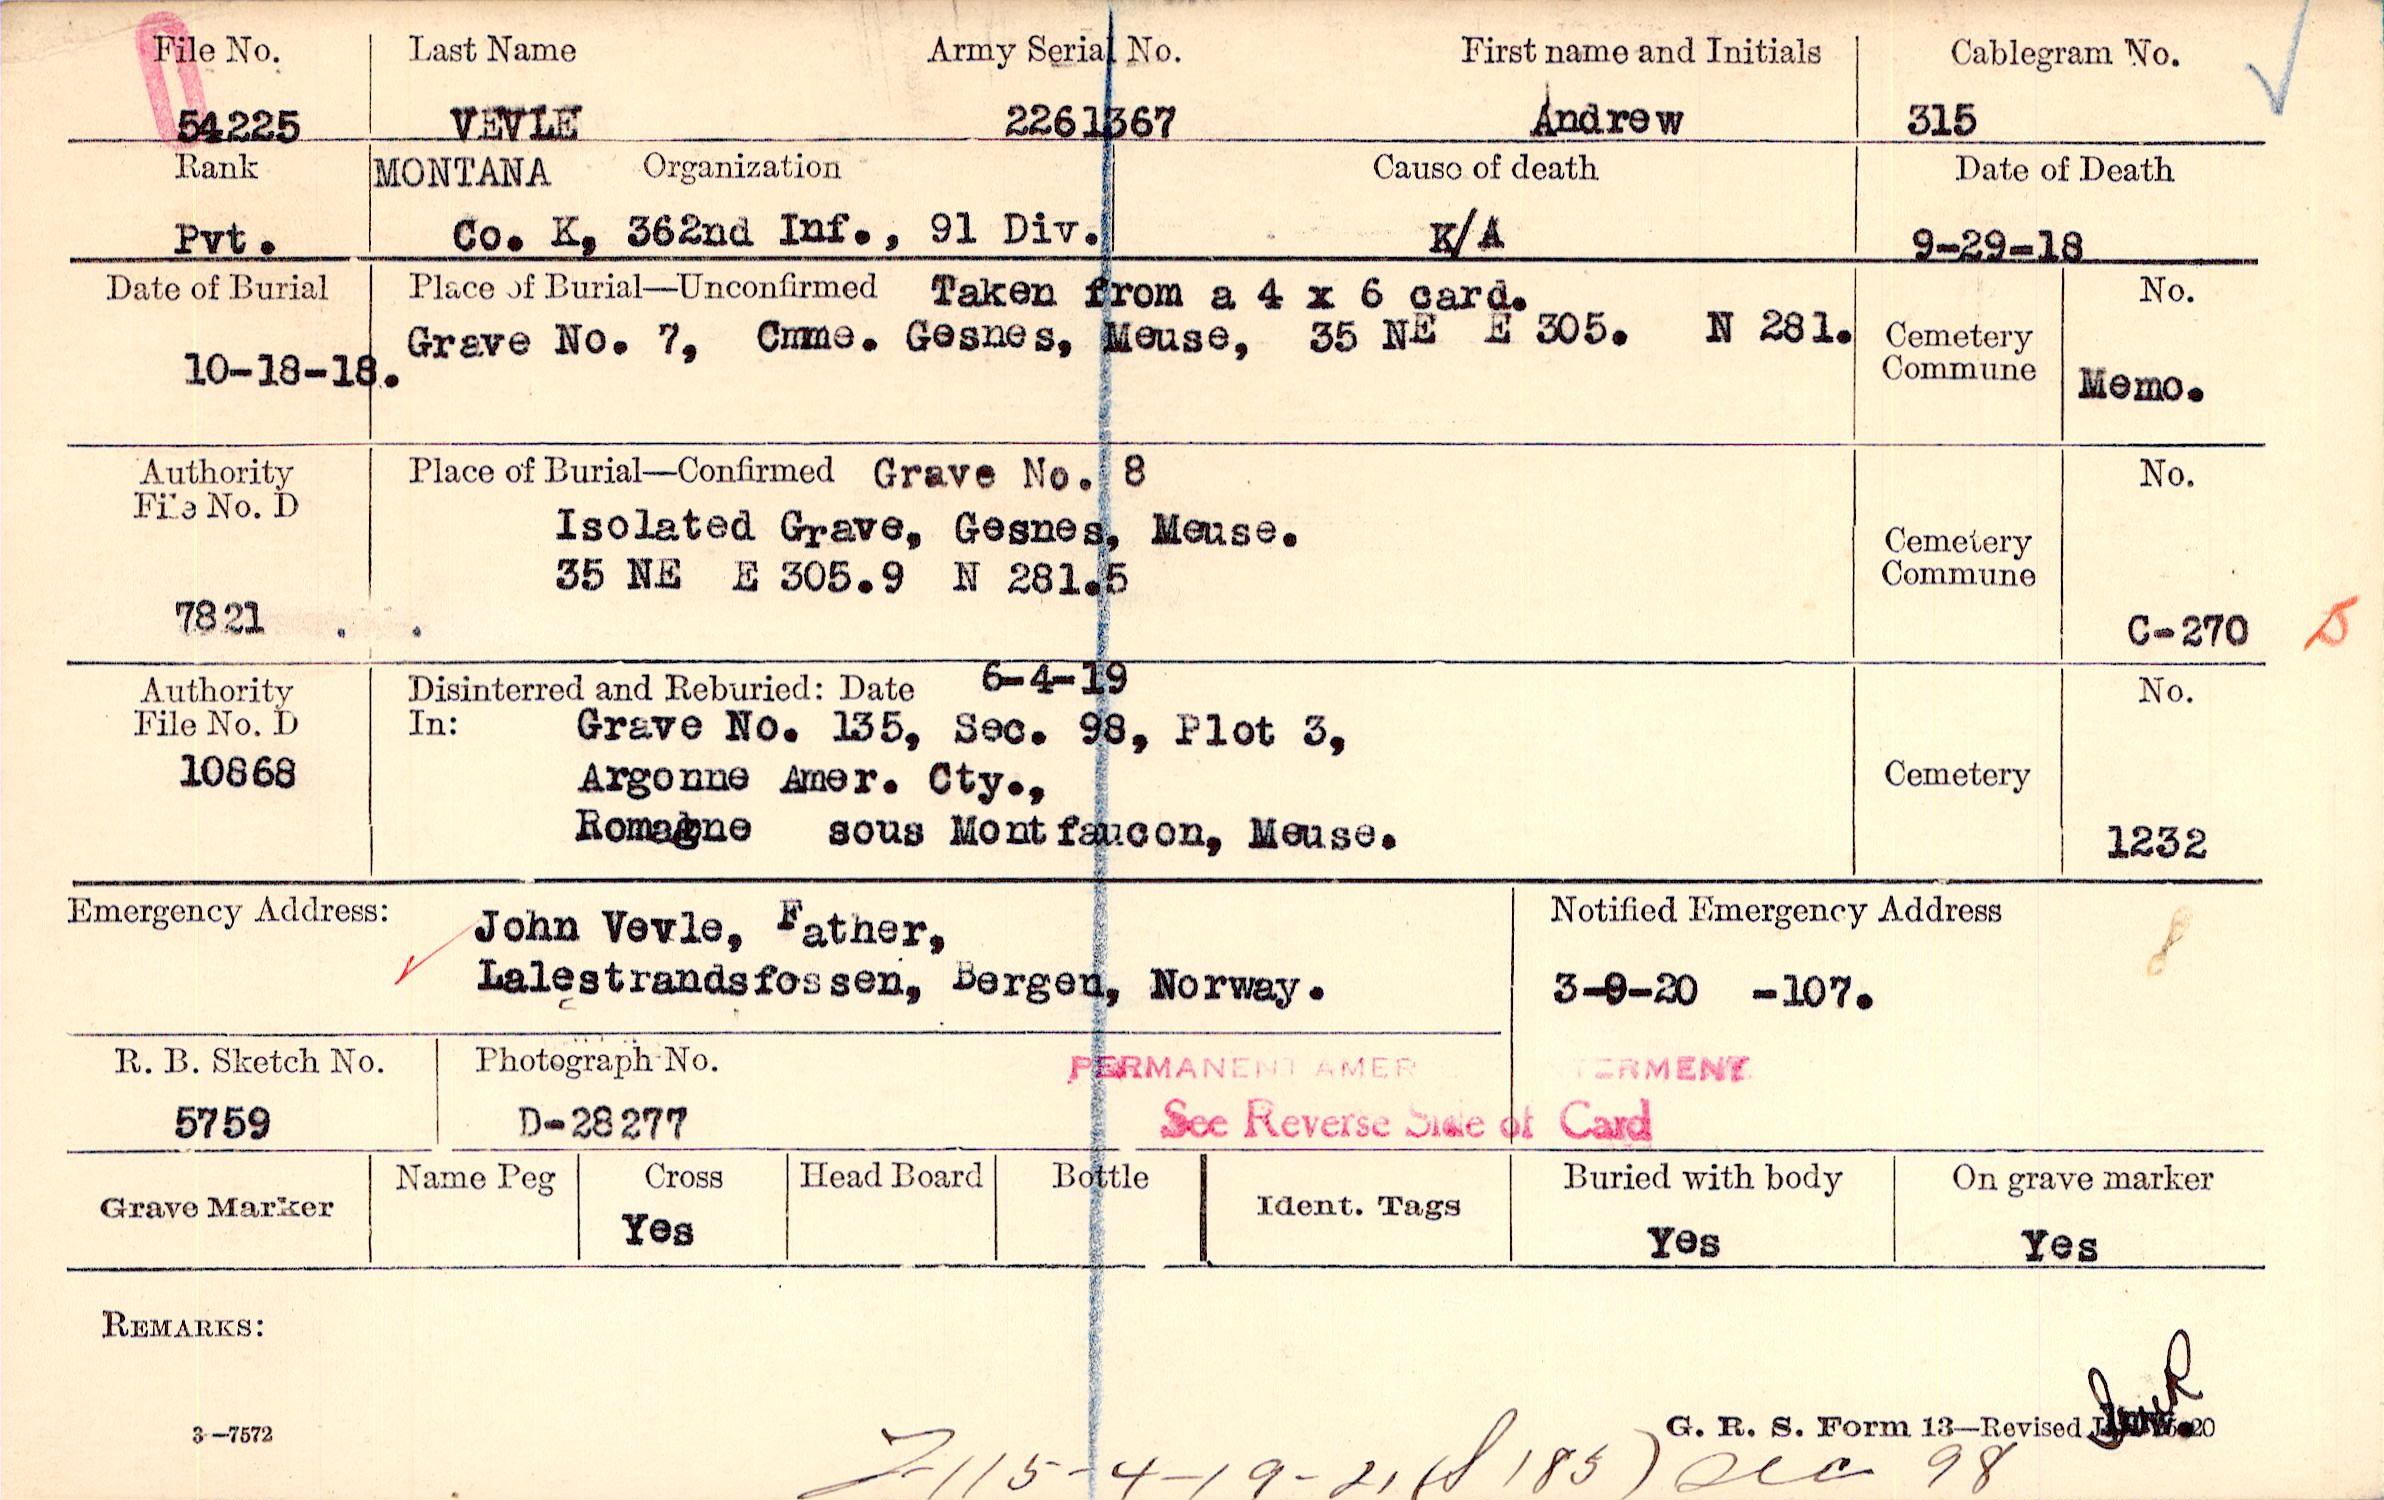 File No. Last Name Army Serial No. First name and Initials Cablegram No.
54225 VEVLE 2261367 Andrew 315
Rank MONTANA Organization Cause of death Date of Death
Pvt. Co. K, 362nd Inf., 91 Div. K/A 9-29-18
Date of Burial Place of Burial—Unconfirmed Taken from a 4 x 6 card. No.
Grave No. 7, Cmme. Gesnes, Meuse, 35 NE E 305. N 281. Cemetery
10-18-18. Commune Memo.
Authority Place of Burial—Confirmed Grave No. 8 No.
File No. D
Isolated Grave, Gesnes, Meuse. Cemetery
35 NE E 305.9 N 281.5 Commune
7821 C-270
Authority Disinterred and Reburied: Date 6-4-19 No.
File No. D In: Grave No. 135, Sec. 98, Plot 3,
10868 Argonne Amer. Cty., Cemetery
Romagne sous Montfaucon, Meuse. 1232
Emergency Address: John Vevle, Father, Notified Emergency Address
Lalestrandsfossen, Bergen, Norway. 3-9-20 -107.
R. B. Sketch No. Photograph No. PERMANENT AMER TERMENT
5759 D-28277 See Reverse Side of Card
Grave Marker Name Peg Cross Head Board Bottle Ident. Tags Buried with body On grave marker
Yes Yes Yes
REMARKS:
3—7572 G. R. S. Form 13—Revised 20
115-4-19-21 (S 185) Sec 98